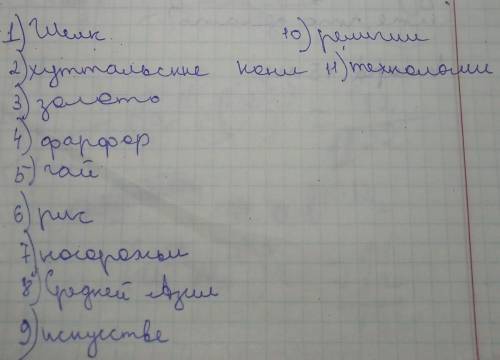 1) Шелк.
2) хуттальские кони
3) золото
4) фарфор
5) чай
6) рис
7) носорожьи
8) Средней Азии
9) искусстве
10) религии
11) технологии